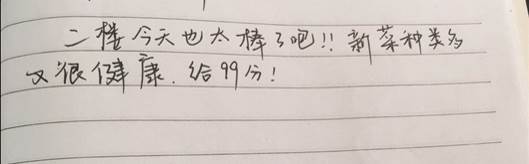 二楼今天也太棒了吧!! 新菜种类多
又很健康. 给99分!